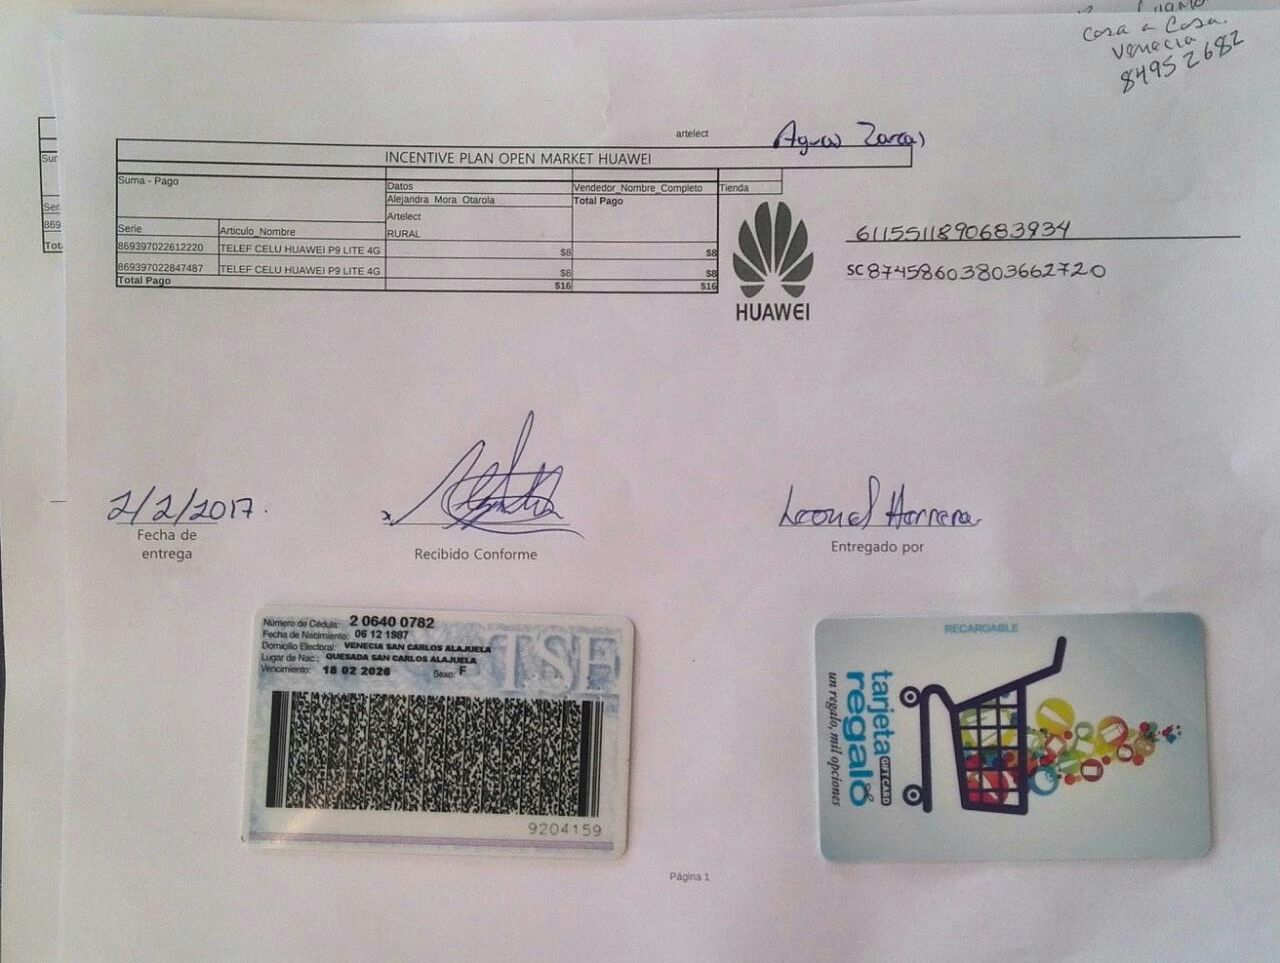 Casa a Casa.
Venecia
84952682
artelect
Aguas Zarcas
INCENTIVE PLAN OPEN MARKET HUAWEI
Suma - Pago
Datos
Vendedor_Nombre_Completo
Tienda
Alejandra Mora Otarola
Total Pago
Artelect
Serie
Articulo_Nombre
RURAL
869397022612220 TELEF CELU HUAWEI P9 LITE 4G $8 $8
869397022847487 TELEF CELU HUAWEI P9 LITE 4G $8 $8
Total Pago $16 $16
HUAWEI
6115511890683934
SC 87458603803662720
Sur
Ser
869
Tot
2/2/2017.
Fecha de
entrega
Recibido Conforme
Leonel Herrera
Entregado por
Número de Cédula: 2 0640 0782
Fecha de Nacimiento: 06 12 1987
Domicilio Electoral: VENECIA SAN CARLOS ALAJUELA
Lugar de Nac.: QUESADA SAN CARLOS ALAJUELA
Vencimiento: 18 02 2026 Sexo: F
TSE
9204159
RECARGABLE
tarjeta
regalo
GIFT CARD
un regalo, mil opciones
Página 1